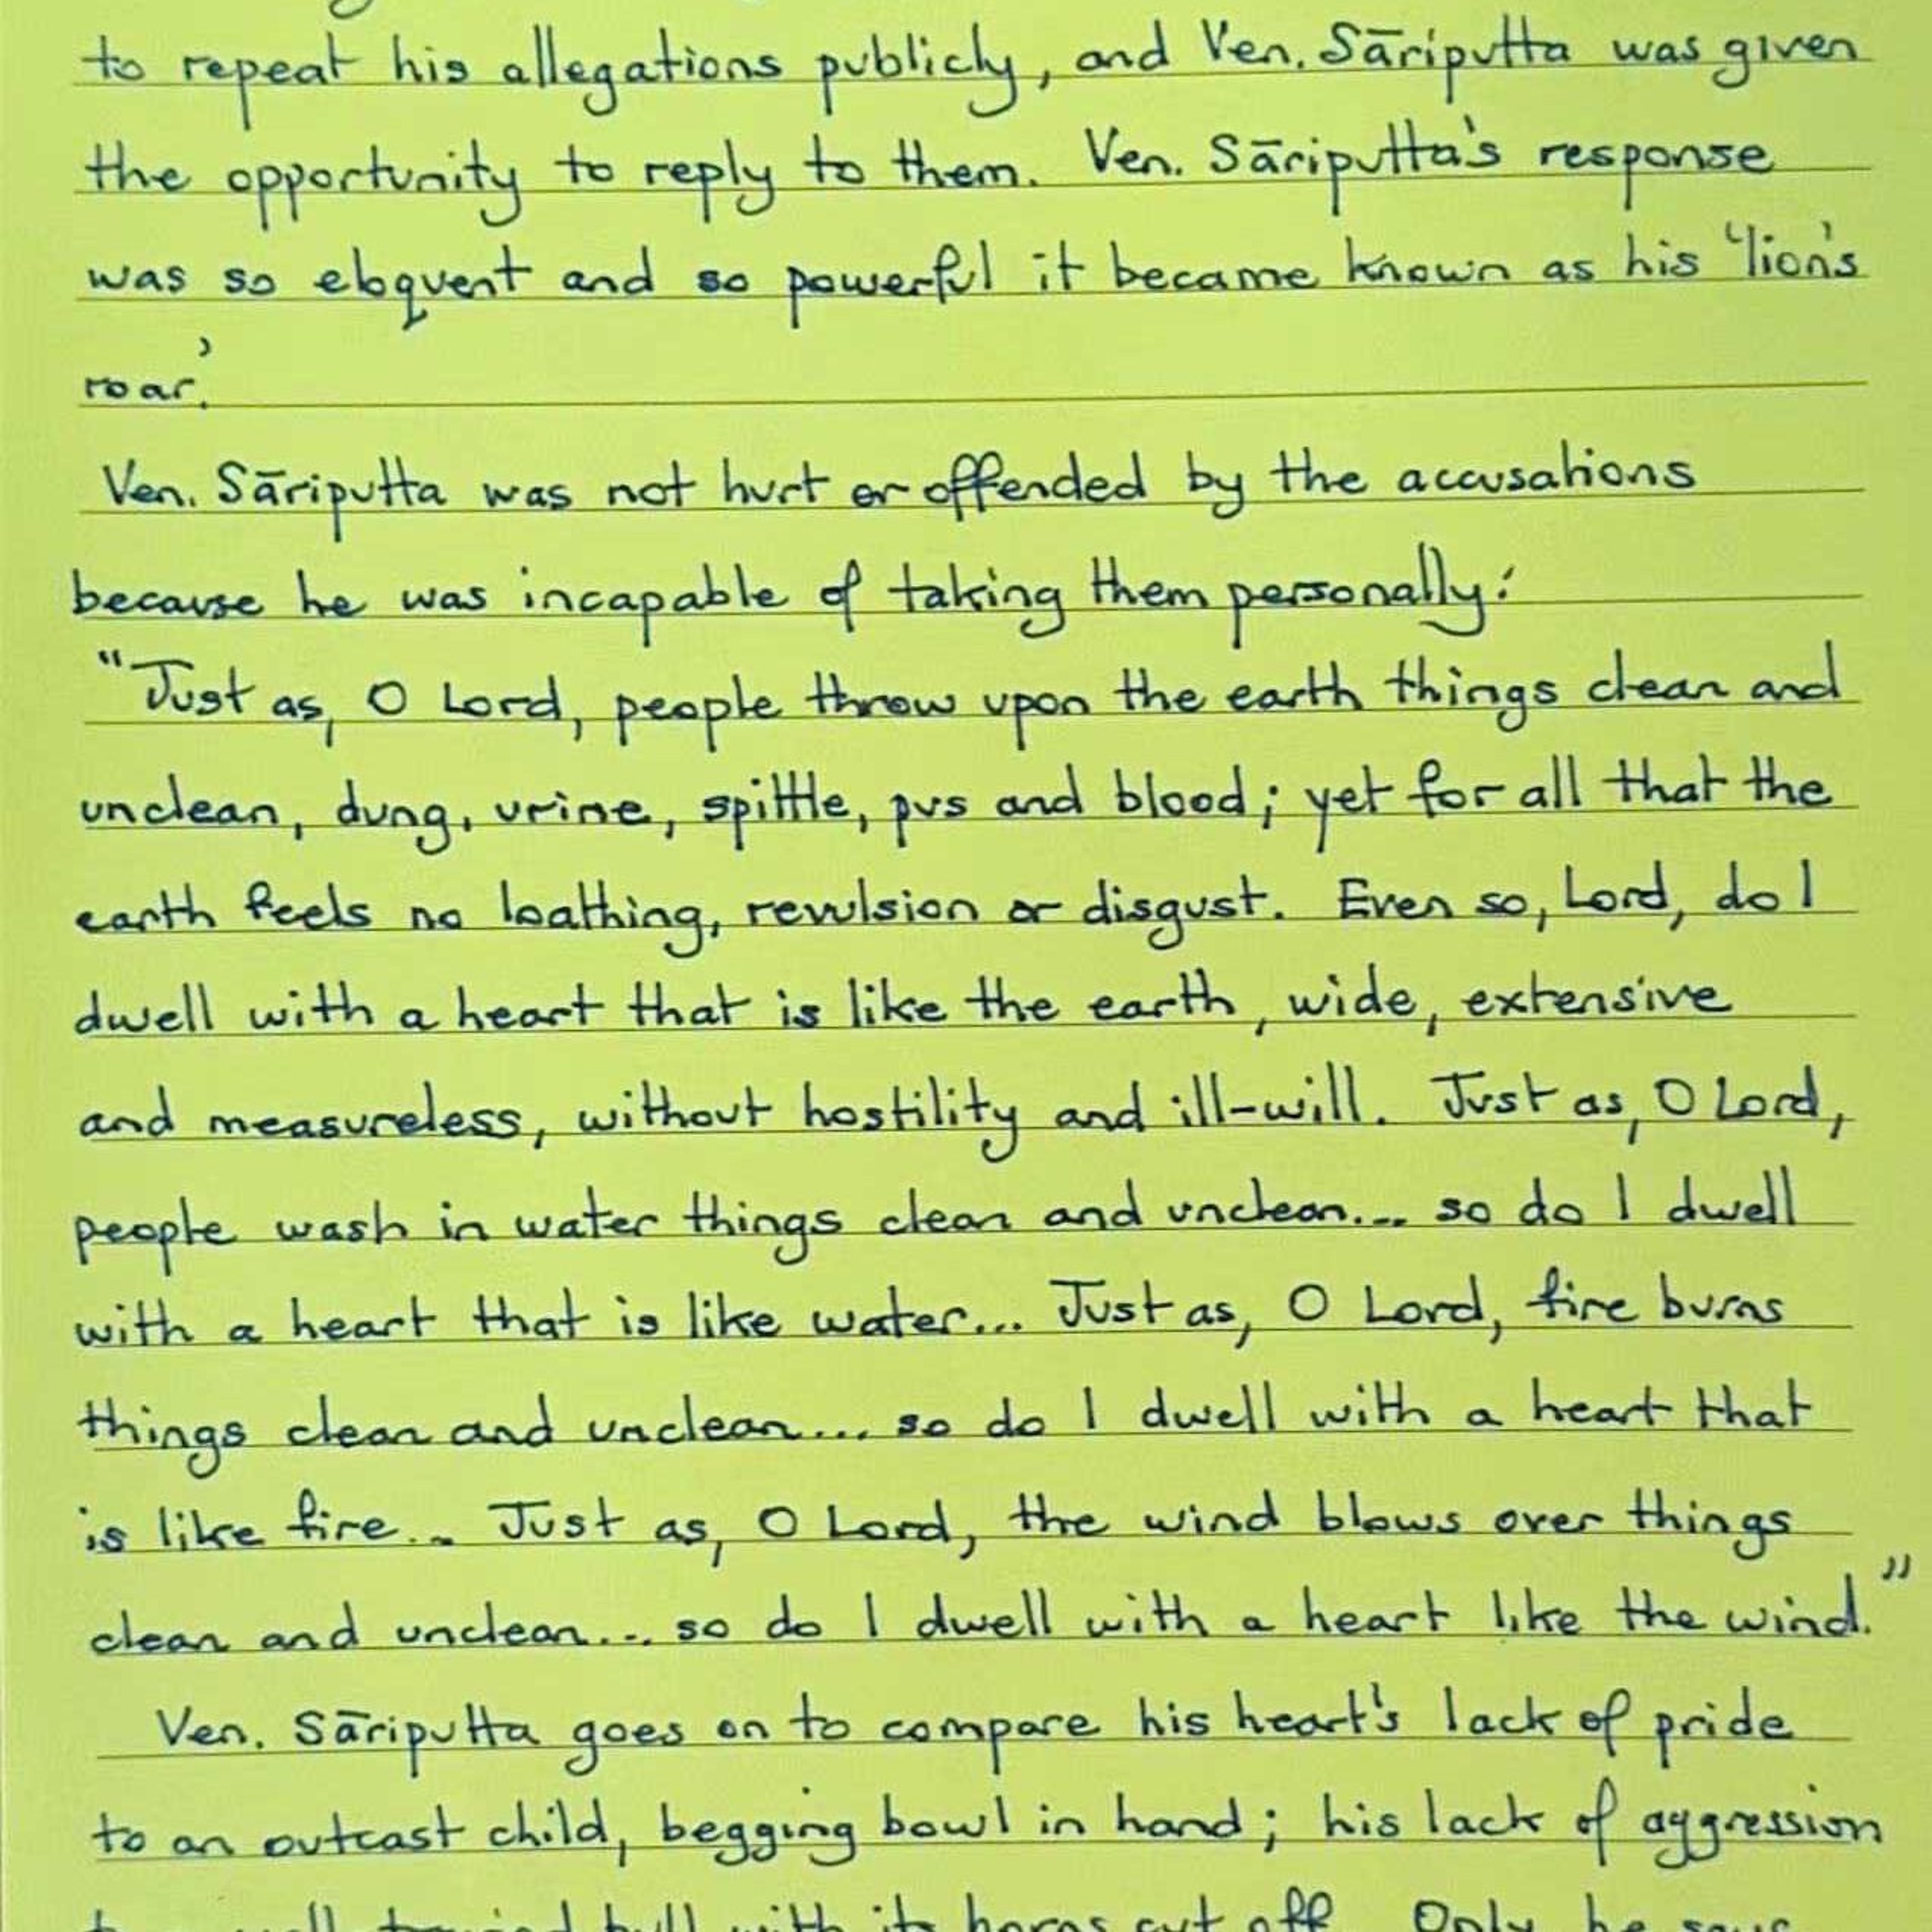 to repeat his allegations publicly, and Ven. Sāriputta was given
the opportunity to reply to them. Ven. Sāriputta's response
was so eloquent and so powerful it became known as his 'lion's
roar.'
Ven. Sāriputta was not hurt or offended by the accusations
because he was incapable of taking them personally:
"Just as, O Lord, people throw upon the earth things clean and
unclean, dung, urine, spittle, pus and blood; yet for all that the
earth feels no loathing, revulsion or disgust. Even so, Lord, do I
dwell with a heart that is like the earth, wide, extensive
and measureless, without hostility and ill-will. Just as, O Lord,
people wash in water things clean and unclean... so do I dwell
with a heart that is like water... Just as, O Lord, fire burns
things clean and unclean... so do I dwell with a heart that
is like fire... Just as, O Lord, the wind blows over things
clean and unclean... so do I dwell with a heart like the wind."
Ven. Sāriputta goes on to compare his heart's lack of pride
to an outcast child, begging bowl in hand; his lack of aggression
bull with its horns cut off. Only, he says